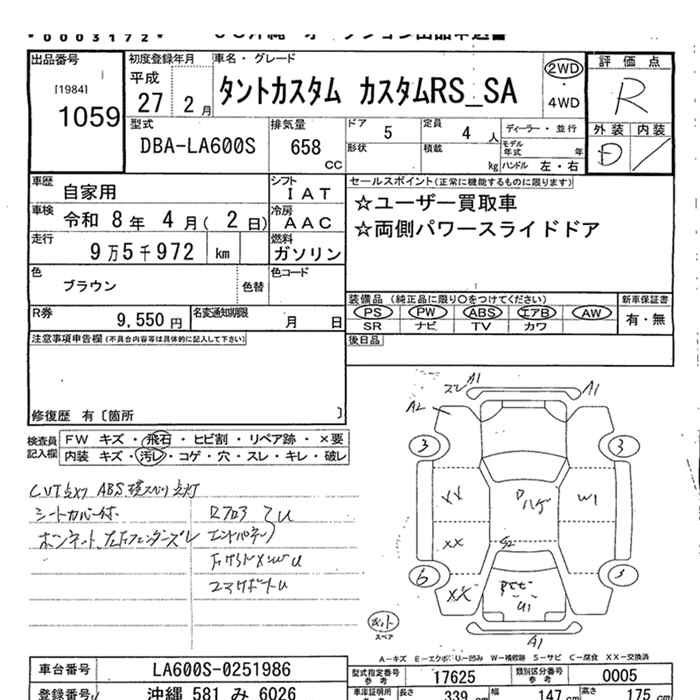 *0003172*
出品番号
[1984]
1059
初度登録年月
平成
27 2月
車名・グレード
タントカスタム カスタムRS_SA
2WD
・
4WD
評価点
R
外装 内装
D
型式
DBA-LA600S
排気量
658
CC
ドア 5
定員 4 人
形状
積載 kg
ディーラー・並行
モデル年式 年
ハンドル 左・右
車歴 自家用
シフト IAT
車検 令和 8年 4月( 2日)
冷房 AAC
走行 9万5千972 km
燃料 ガソリン
色 ブラウン 色替
色コード
R券 9,550円
名変通知期限 月 日
セールスポイント(正常に機能するものに限ります)
☆ユーザー買取車
☆両側パワースライドドア
装備品 (純正品に限り○をつけてください)
PS PW ABS エアB AW
SR ナビ TV カワ
新車保証書
有・無
後日品
注意事項申告欄 (不具合内容等は具体的に記入して下さい)
修復歴 有〔箇所 〕
検査員
記入欄
FW キズ・飛石・ヒビ割・リペア跡・×要
内装 キズ・汚レ・コゲ・穴・スレ・キレ・破レ
シートカバー付
A1
A1
A2
3
3
XX
W1
XX
S2
XX
U1
A1
スペア
A-キズ E-エクボ U-凹み W-補修跡 S-サビ C-腐食 XX-交換済
車台番号 LA600S-0251986
登録番号 沖縄 581 み 6026
型式指定番号
参考
17625
類別区分番号
参考
0005
車庫証明用
長さ 339 cm
幅 147 cm
高さ 175 cm